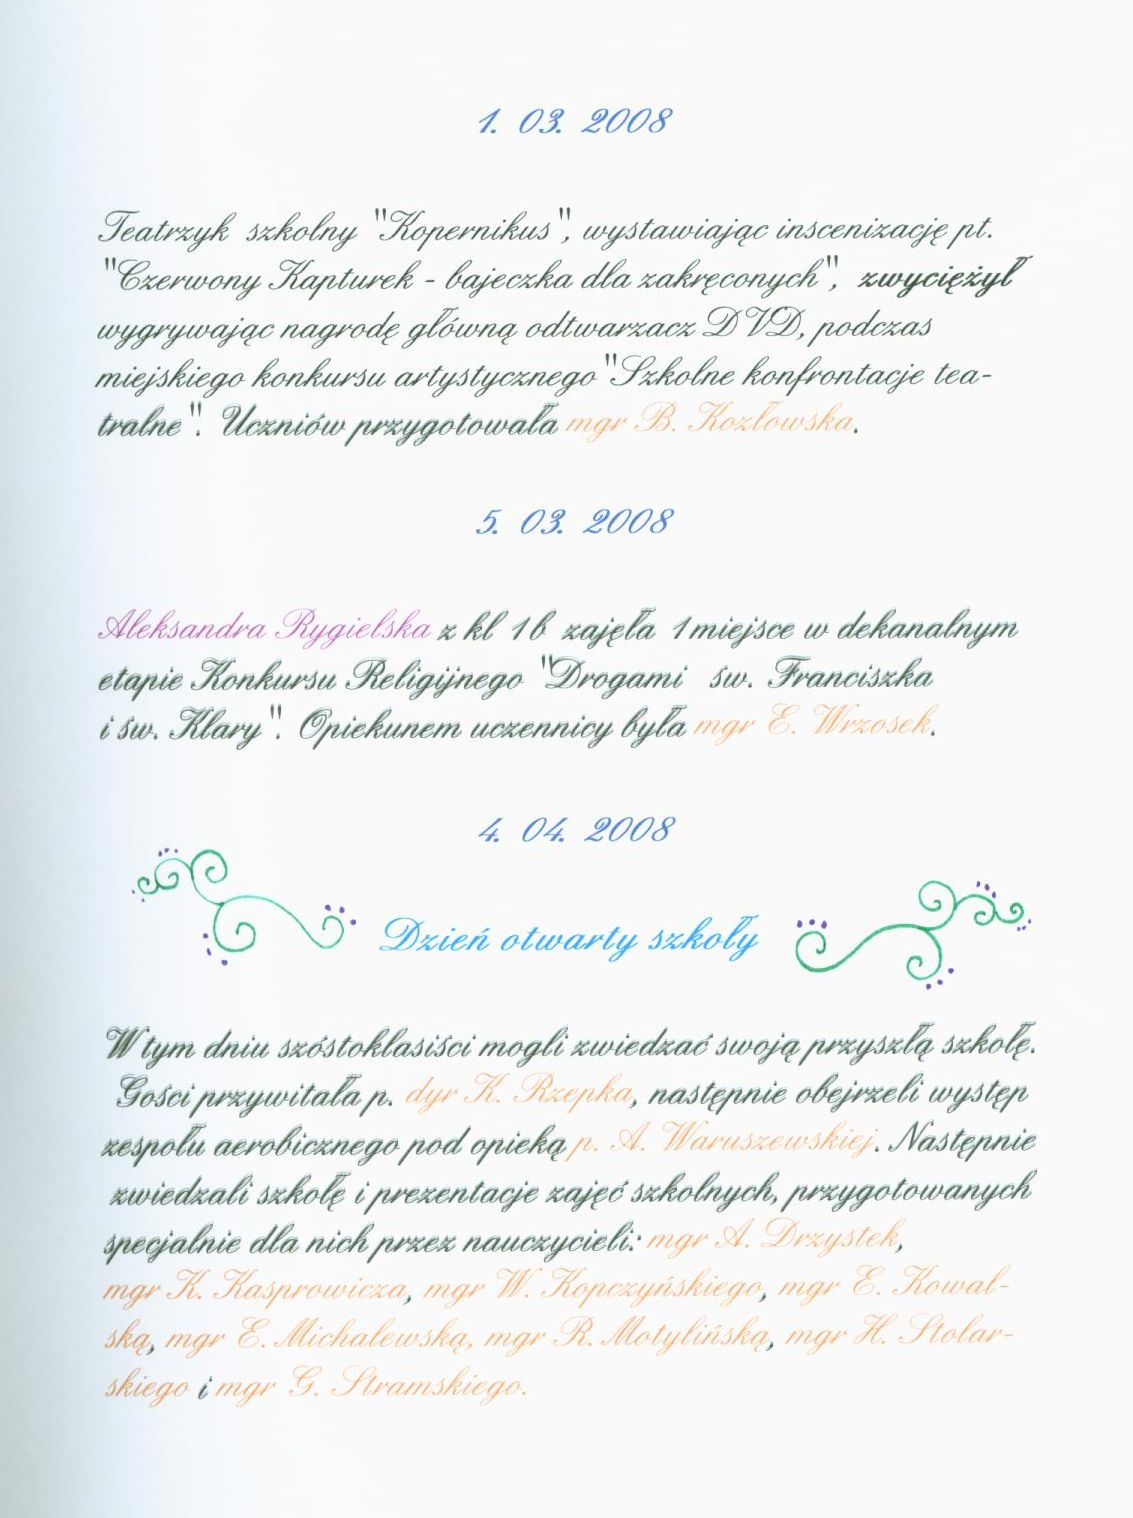 1. 03. 2008
Teatrzyk szkolny "Kopernikus", wystawiając inscenizację pt.
"Czerwony Kapturek - bajeczka dla zakręconych", zwyciężył
wygrywając nagrodę główną odtwarzacz DVD, podczas
miejskiego konkursu artystycznego "Szkolne konfrontacje tea-
tralne". Uczniów przygotowała mgr B. Kozłowska.
5. 03. 2008
Aleksandra Rygielska z kl 1b zajęła 1 miejsce w dekanalnym
etapie Konkursu Religijnego "Drogami św. Franciszka
i św. Klary". Opiekunem uczennicy była mgr E. Wrzosek.
4. 04. 2008
Dzień otwarty szkoły
W tym dniu szóstoklasiści mogli zwiedzać swoją przyszłą szkołę.
Gości przywitała p. dyr K. Rzepka, następnie obejrzeli występ
zespołu aerobicznego pod opieką p. A. Waruszewskiej. Następnie
zwiedzali szkołę i prezentacje zajęć szkolnych, przygotowanych
specjalnie dla nich przez nauczycieli: mgr A. Drzystek,
mgr K. Kasprowicza, mgr W. Kopczyńskiego, mgr E. Kowal-
ską, mgr E. Michalewską, mgr R. Motylińską, mgr H. Stolar-
skiego i mgr G. Stramskiego.